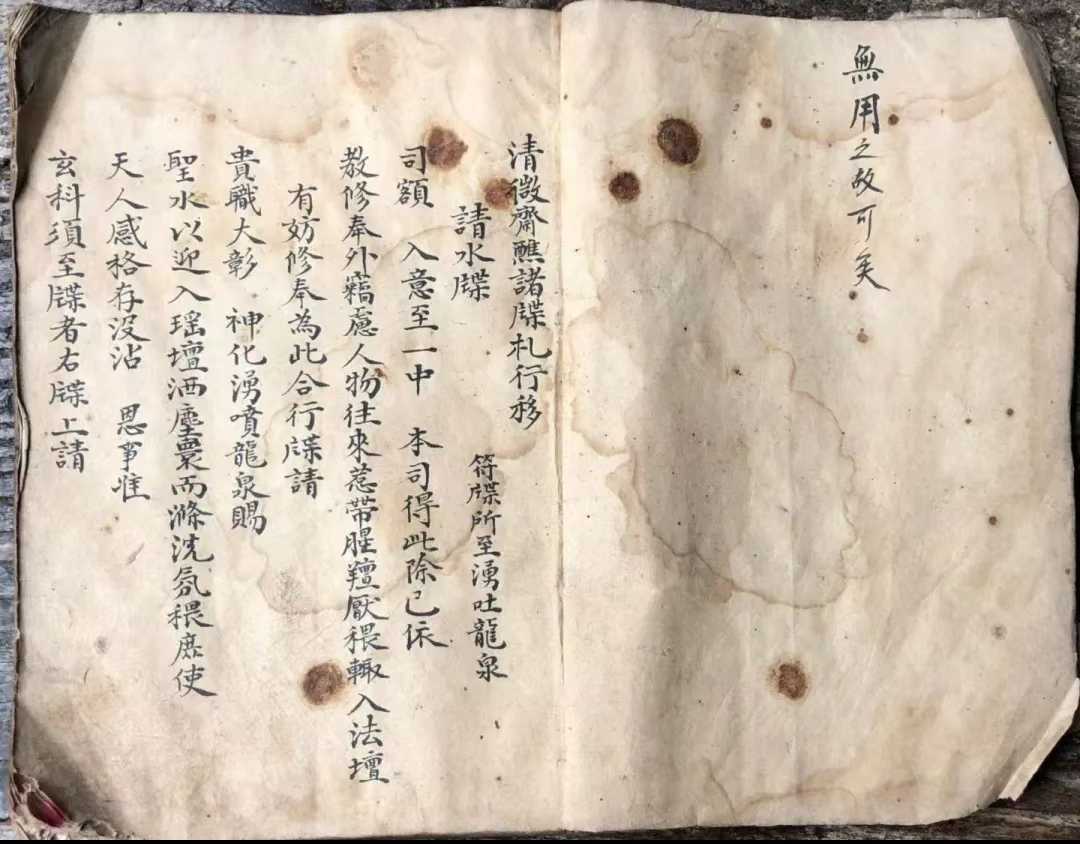 無用之故可矣
清微齋醮諸牒札行移
請水牒 符牒所至湧吐龍泉
司額 入意至一中 本司得此除已依
教修奉外竊慮人物往來惹帶腥羶厭穢輙入法壇
有妨修奉為此合行牒請
貴職大彰 神化湧噴龍泉賜
聖水以迎入瑶壇洒塵寰而滌沈氛穢庶使
天人感格存没沾 恩事惟
玄科須至牒者右牒上請